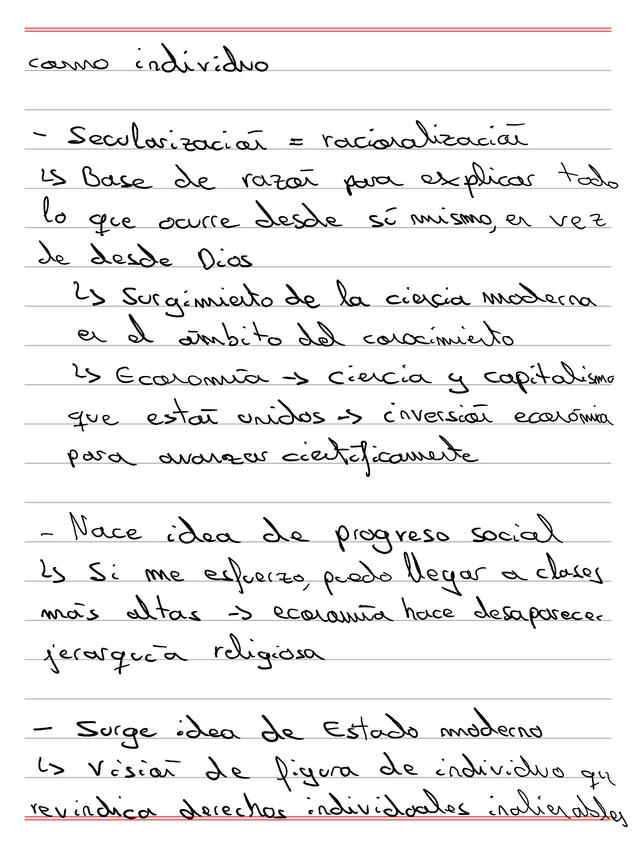 como individuo
- Secularización = racionalización
↳ Base de razón para explicar todo
lo que ocurre desde sí mismo, en vez
de desde Dios
↳ Surgimiento de la ciencia moderna
en el ámbito del conocimiento
↳ Economía → ciencia y capitalismo
que están unidos → inversión económia
para avanzar científicamente
- Nace idea de progreso social
↳ Si me esfuerzo, puedo llegar a clases
más altas → economía hace desaparecer
jerarquía religiosa
- Surge idea de Estado moderno
↳ Visión de figura de individuo que
revindica derechos individuales inalienables